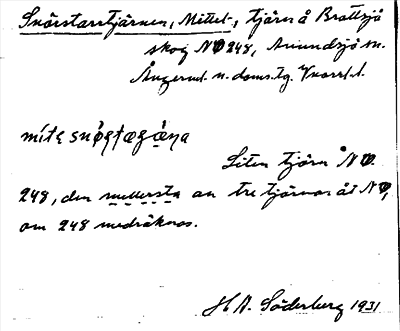 Snårstarrtjärnen, Mittel-, tjärn å Brattsjö
skog NV 248, Anundsjö sn.
Ångerml. n. doms. tg. Vnorrl. l.
Liten tjärn å NV.
248, den mellersta av tre tjärnar åt NV,
om 248 medräknas.
H. A. Söderberg 1931